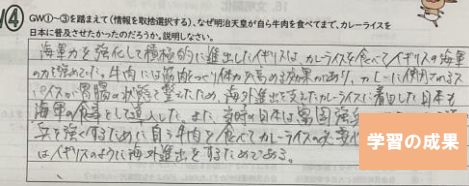 ④
GW①~③を踏まえて（情報を取捨選択する）、なぜ明治天皇が自ら牛肉を食べてまで、カレーライスを
日本に普及させたかったのだろうか。説明しなさい。
海軍力を強化して積極的に進出したイギリスは、カレーライスを食べてイギリスの海軍
の力を強めていた。牛肉には筋肉をつけ体力を高める効果があり、カレーに使われるス
パイスが胃腸の状態を整えたため、海外進出を支えたカレーライスに着目した日本も
海軍の食事として導入した。また、当時の日本は富国強兵
をするために自ら牛肉を食べてカレーライスの
はイギリスのように海外進出をするためである。
学習の成果